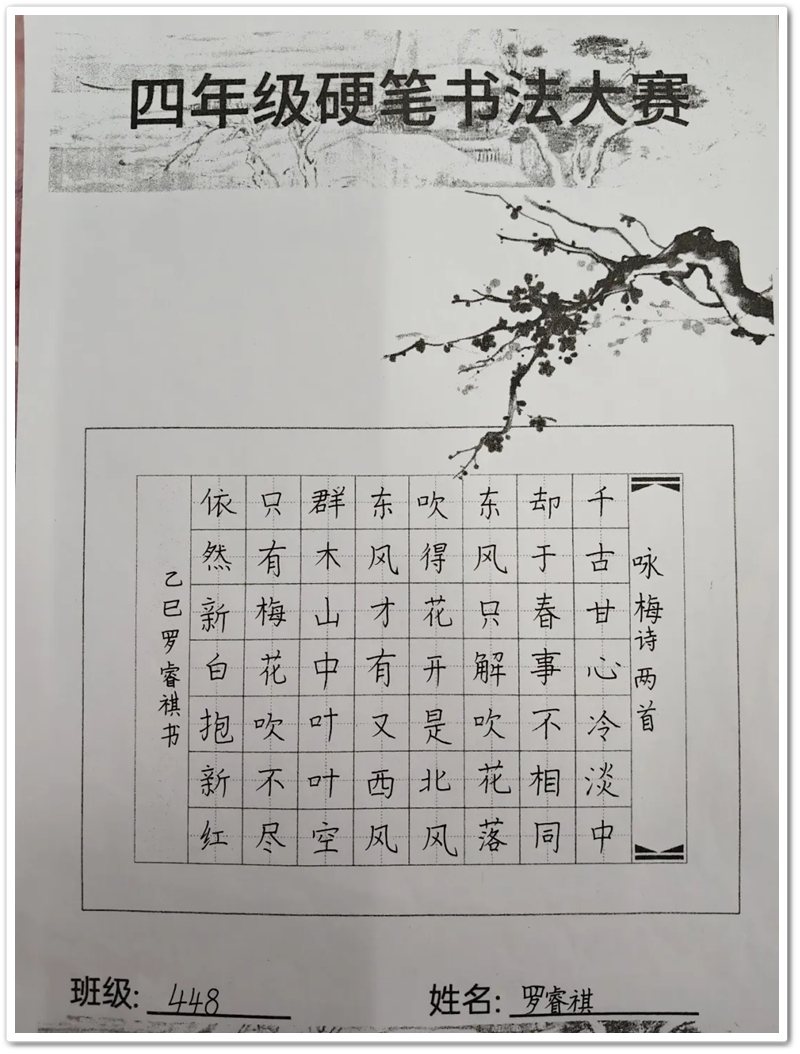 四年级硬笔书法大赛
咏梅诗两首
千古甘心冷淡中
却于春事不相同
东风只解吹花落
吹得花开是北风
东风才有又西风
群木山中叶叶空
只有梅花吹不尽
依然新白抱新红
乙巳罗睿祺书
班级: 448
姓名: 罗睿祺